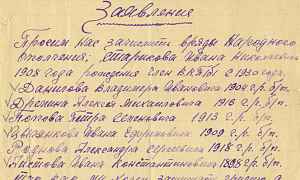 Заявление
Просим Вас зачислить в ряды Народного
ополчения; Старикова Ивана Николаевича
1908 года рождения член ВКП(б) с 1930 года.
Данилова Владимира Ивановича 1904 г.р. б/п.
Алексея Михайловича 1916 г.р. б/п.
Петра Семеновича 1913 г.р. б/п.
Ивана Егоровича 1909 г.р. б/п.
Александра Сергеевича 1918 г.р. б/п.
Ивана Константиновича 1898 г.р. б/п.